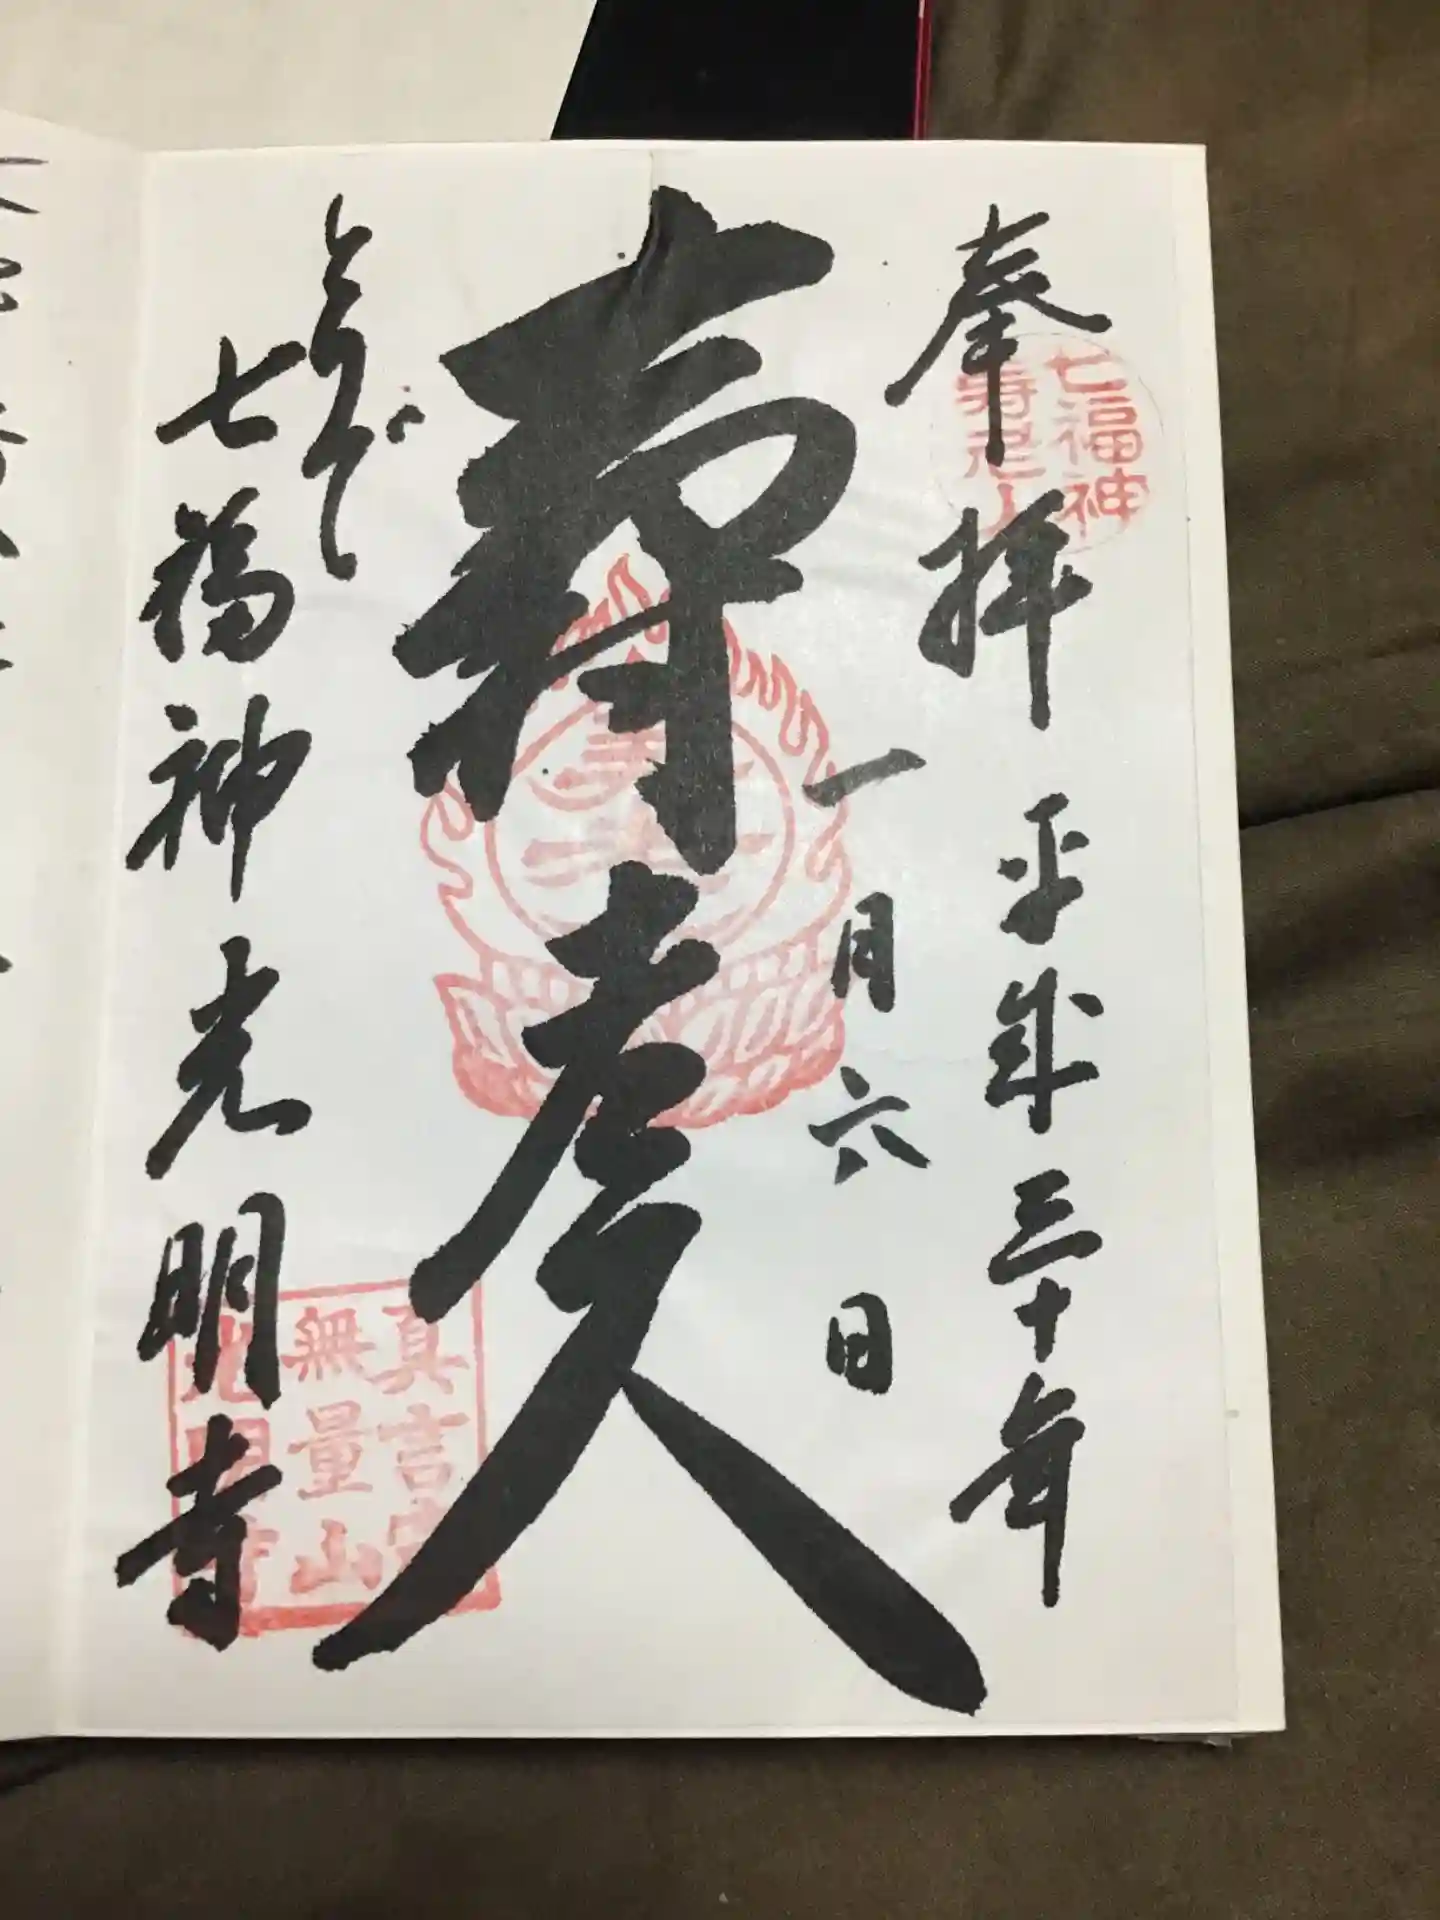 奉拝
七福神
寿老人
平成三十年
一月六日
寿老人
とりで
七福神光明寺
真言宗
無量山
光明寺